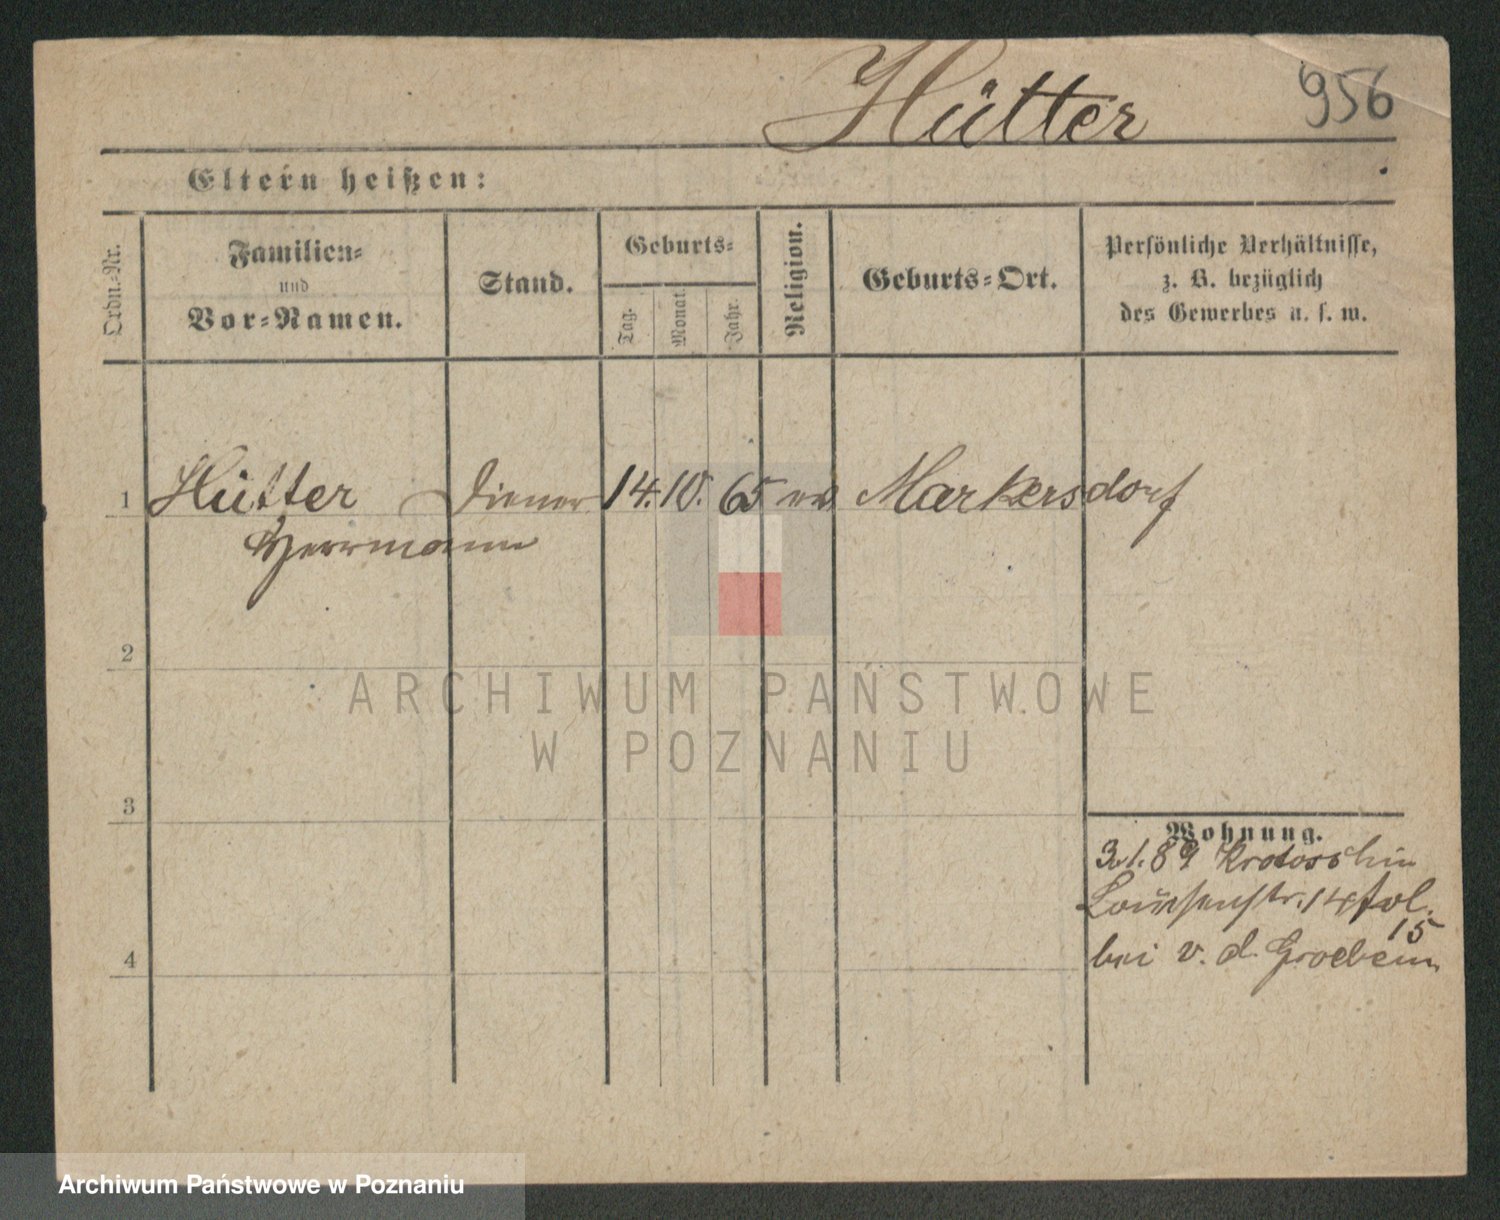 Hütter
956
Eltern heißen:
Ordn.-Nr.
Familien-
und
Vor-Namen.
Stand.
Geburts-
Tag.
Monat.
Jahr.
Religion.
Geburts-Ort.
Persönliche Verhältnisse,
z. B. bezüglich
des Gewerbes u. s. w.
1 Hütter Diener 14. 10. 65 ev Markersdorf
Herrmann
2
ARCHIWUM PAŃSTWOWE
W POZNANIU
3
Wohnung.
3.1.89 Krotoschin
Louisenstr. 14 fol.
15
bei v. d. Groeben
4
Archiwum Państwowe w Poznaniu